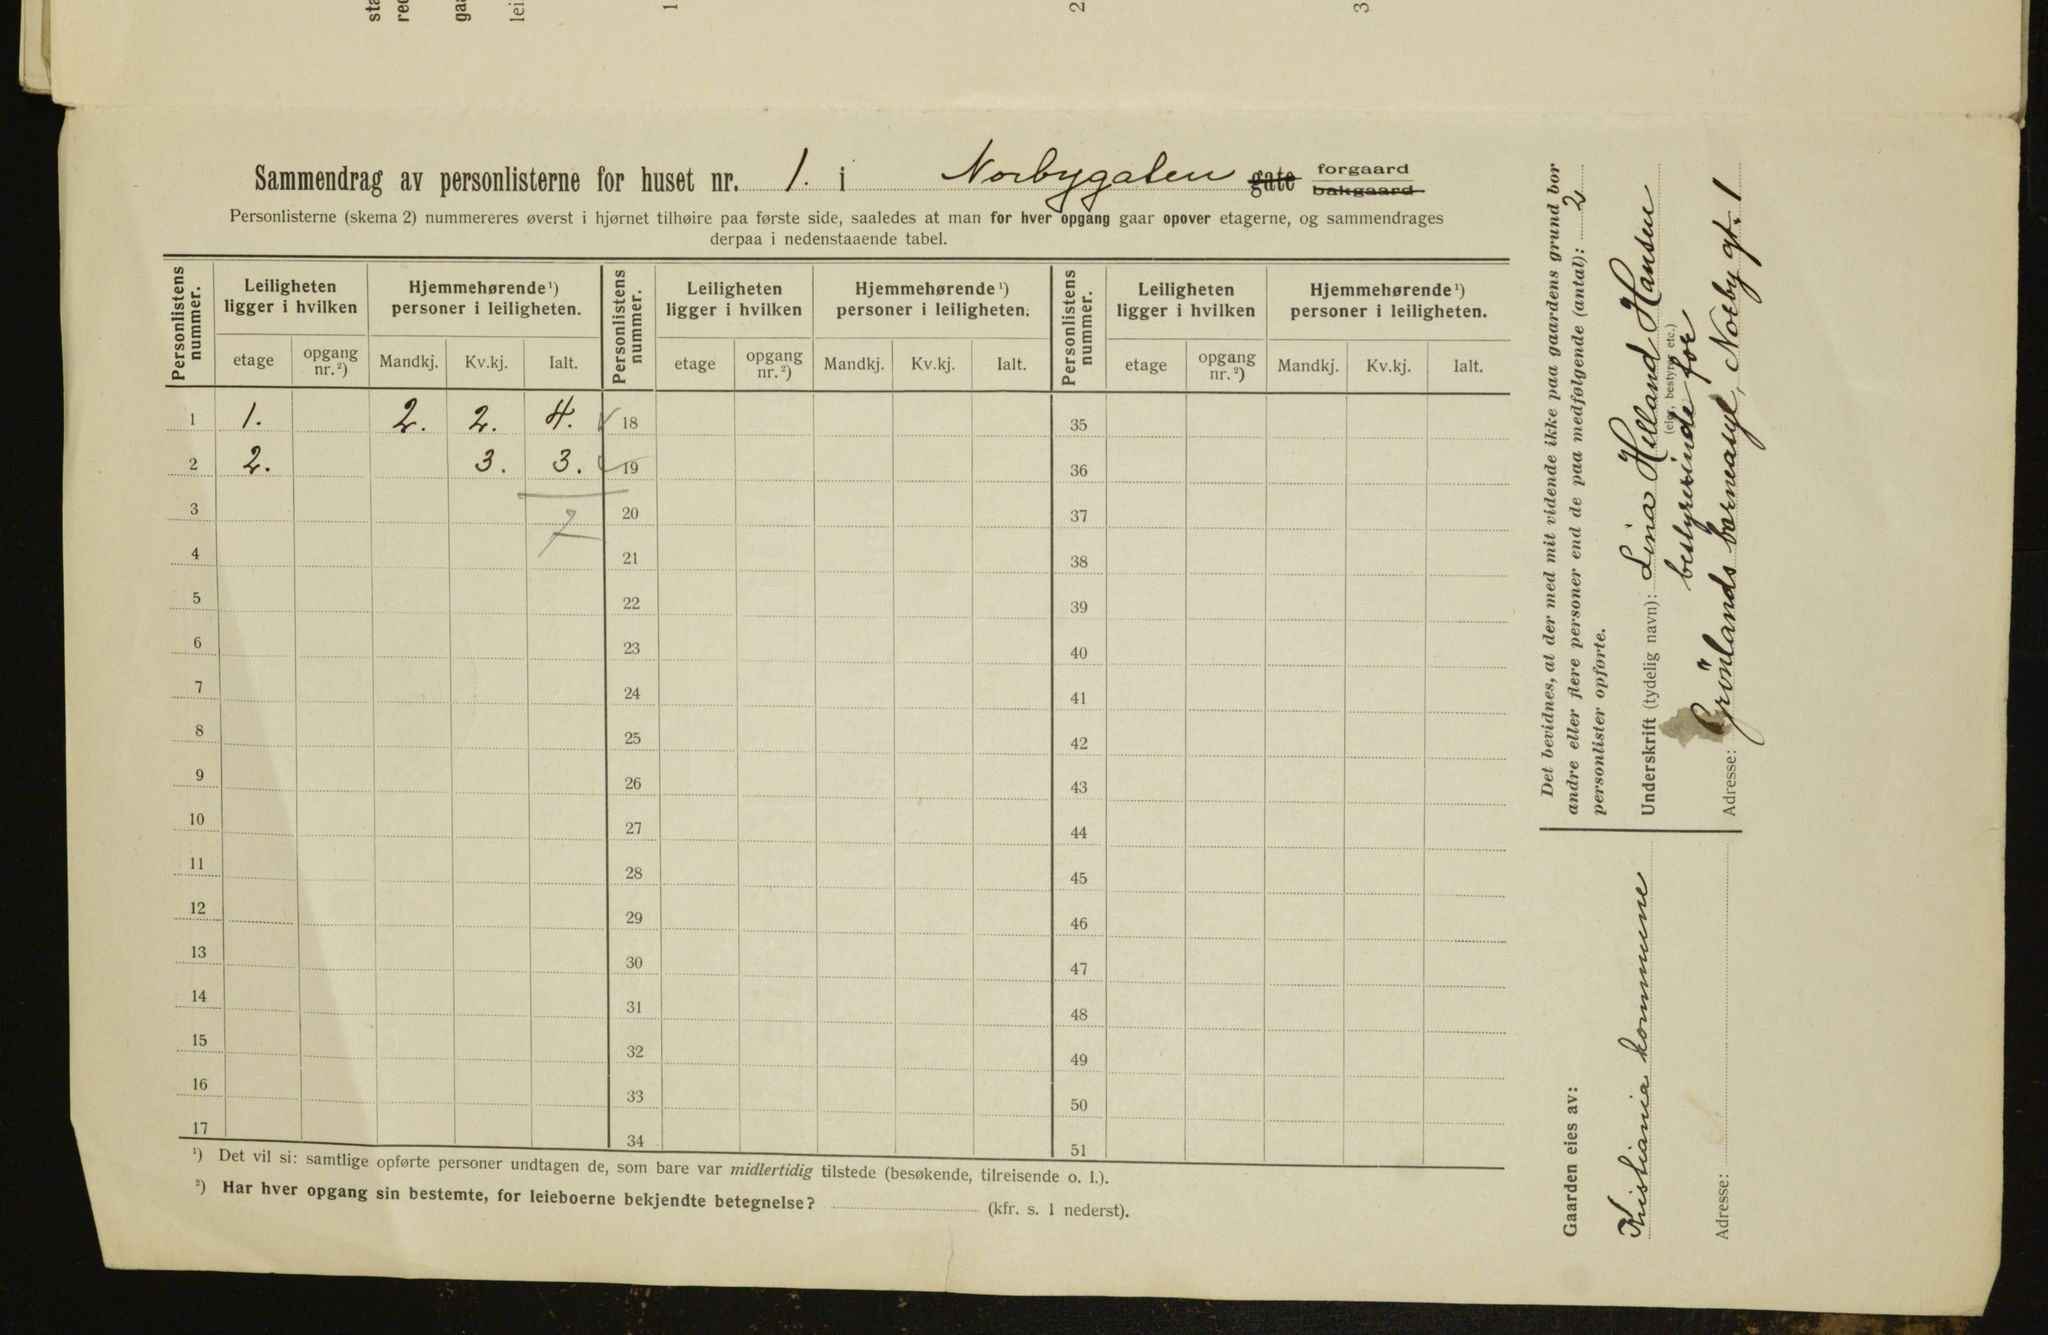 sta
rec
gaa
lei
1
2
3
Sammendrag av personlisterne for huset nr. 1. i Norbygaten gate forgaard bakgaard
Personlisterne (skema 2) nummereres øverst i hjørnet tilhøire paa første side, saaledes at man for hver opgang gaar opover etagerne, og sammendrages
derpaa i nedenstaaende tabel.
Personlistens nummer. Leiligheten ligger i hvilken Hjemmehørende ¹) personer i leiligheten. Personlistens nummer. Leiligheten ligger i hvilken Hjemmehørende ¹) personer i leiligheten. Personlistens nummer. Leiligheten ligger i hvilken Hjemmehørende ¹) personer i leiligheten.
etage opgang nr. ²) Mandkj. Kv.kj. Ialt. etage opgang nr. ²) Mandkj. Kv.kj. Ialt. etage opgang nr. ²) Mandkj. Kv.kj. Ialt.
1 1. 2. 2. 4. 18 35
2 2. 3. 3. 19 36
3 7 20 37
4 21 38
5 22 39
6 23 40
7 24 41
8 25 42
9 26 43
10 27 44
11 28 45
12 29 46
13 30 47
14 31 48
15 32 49
16 33 50
17 34 51
¹) Det vil si: samtlige opførte personer undtagen de, som bare var midlertidig tilstede (besøkende, tilreisende o. l.).
²) Har hver opgang sin bestemte, for leieboerne bekjendte betegnelse? (kfr. s. 1 nederst).
Det bevidnes, at der med mit vidende ikke paa gaardens grund bor
andre eller flere personer end de paa medfølgende (antal): 2
personlister opførte.
Underskrift (tydelig navn): Lina Helland Hansen
(eier, bestyrer etc.)
bestyrerinde for
Grönlands barneasyl, Norby gt. 1
Adresse:
Gaarden eies av:
Kristiania kommune
Adresse: